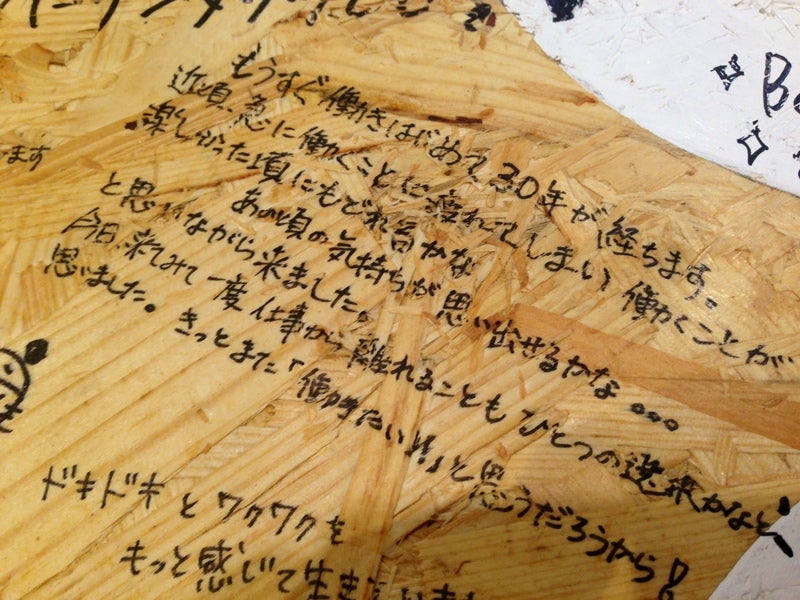 もうすぐ働きはじめて30年が経ちます。
近頃、急に働くことに疲れてしまい 働くことが
楽しかった頃にもどれるかな
あの頃の気持ちが思い出せるかな...
と思いながら来ました。
今日、来てみて一度仕事から離れることもひとつの選択かなと、
思いました。 きっとまた「働きたい!!」と思うだろうから!
ドキドキとワクワクを
もっと感じて生き
います
B